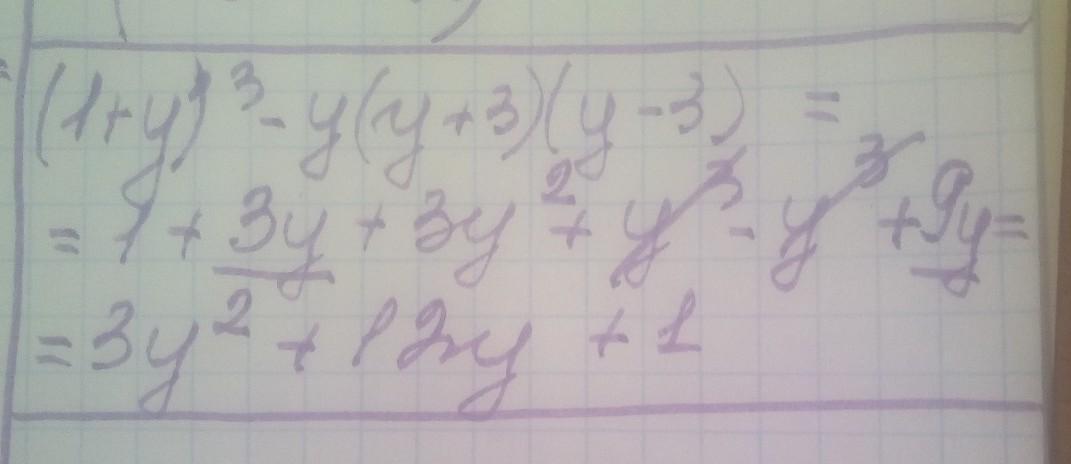 (1+y)³ - y(y+3)(y-3) =
= 1 + 3y + 3y² + y³ - y³ + 9y =
= 3y² + 12y + 1